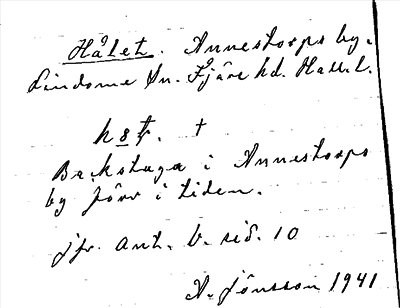 Hålet. Annestorps by.
Lindome sn. Fjäre hd. Hall. l.
h8t. †
Backstuga i Annestorps
by förr i tiden.
jfr. ant. b. sid. 10
A. Jönsson 1941